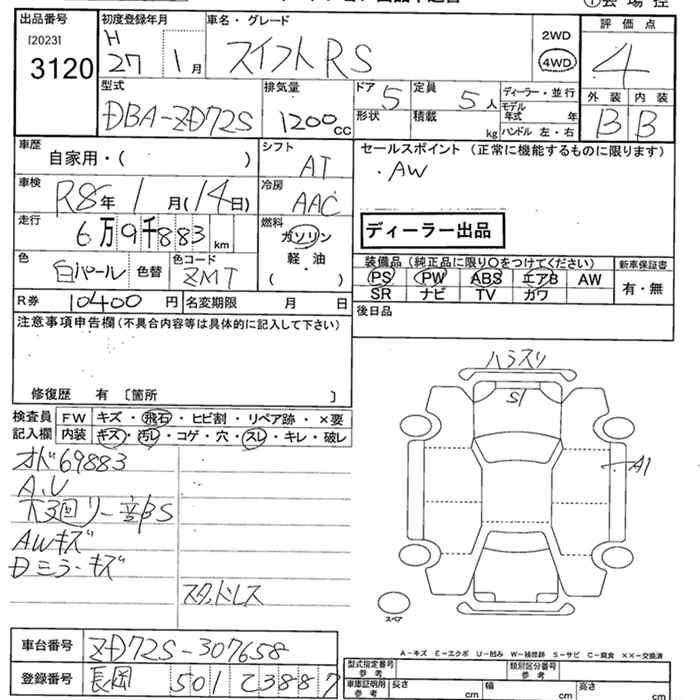 出品番号
[2023]
3120
初度登録年月
H
27 1月
車名・グレード
スイフトRS
2WD
4WD
評価点
4
外装 内装
B B
型式
DBA-ZD72S
排気量
1200cc
ドア 5
定員 5人
形状
積載 kg
ディーラー・並行
モデル年式 年
ハンドル 左・右
車歴
自家用・( )
シフト
AT
セールスポイント (正常に機能するものに限ります)
・AW
車検
R8年 1月(14日)
冷房
AAC
走行
6万9千883km
燃料
ガソリン
軽・油
( )
ディーラー出品
色
白パール
色替
色コード
ZMT
装備品 (純正品に限り○をつけてください)
新車保証書
PS PW ABS エアB AW
SR ナビ TV カワ
有・無
R券 10400円
名変期限 月 日
後日品
注意事項申告欄(不具合内容等は具体的に記入して下さい)
修復歴 有 〔箇所 〕
検査員
記入欄
FW キズ・飛石・ヒビ割・リペア跡・×要
内装 キズ・汚レ・コゲ・穴・スレ・キレ・破レ
オド69883
A.U
下廻リ一部S
AWキズ
Dミラーキズ
スタッドレス
ハラスリ
S1
A1
スペア
A-キズ E-エクボ U-凹み W-補修跡 S-サビ C-腐食 ××-交換済
車台番号
ZD72S-307658
登録番号
長岡 501 て3887
型式指定番号
参考
類別区分番号
参考
車庫証明用
参考
長さ cm
幅 cm
高さ cm